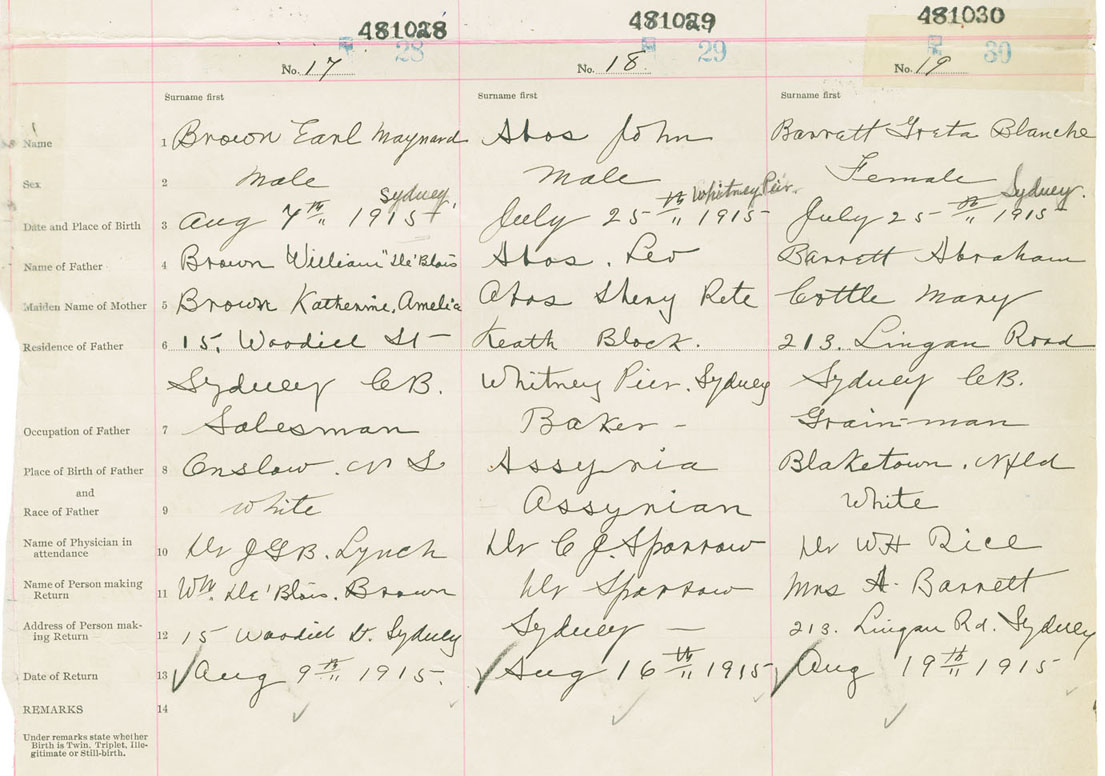 481028 481029 481030
28 29 30
No. 17 No. 18 No. 19
Surname first Surname first Surname first
Name 1 Brown Earl Maynard Abos John Barrett Greta Blanche
Sex 2 Male Male Female
Sydney, Whitney Pier. Sydney.
Date and Place of Birth 3 Aug 7th 1915 July 25th 1915 July 25th 1915
Name of Father 4 Brown William "De'Blois Abos. Leo Barrett Abraham
Maiden Name of Mother 5 Brown Katherine. Amelia Abos Rete Cottle Mary
Residence of Father 6 15. Woodill St Block. 213. Lingan Road
Sydney C.B. Whitney Pier. Sydney Sydney C.B.
Occupation of Father 7 Salesman Baker - Grain-man
Place of Birth of Father 8 Onslow. N S Assyria Blaketown. Nfld
and
Race of Father 9 White Assyrian White
Name of Physician in
attendance 10 Dr J G B. Lynch Dr C J. Sparrow Dr W H Rice
Name of Person making
Return 11 Wm. De'Blois. Brown Dr Sparrow Mrs A. Barrett
Address of Person mak-
ing Return 12 15 Woodill St. Sydney Sydney — 213. Lingan Rd. Sydney
Date of Return 13 Aug 9th 1915. Aug 16th 1915 Aug 19th 1915
REMARKS 14
Under remarks state whether
Birth is Twin, Triplet, Ille-
gitimate or Still-birth.